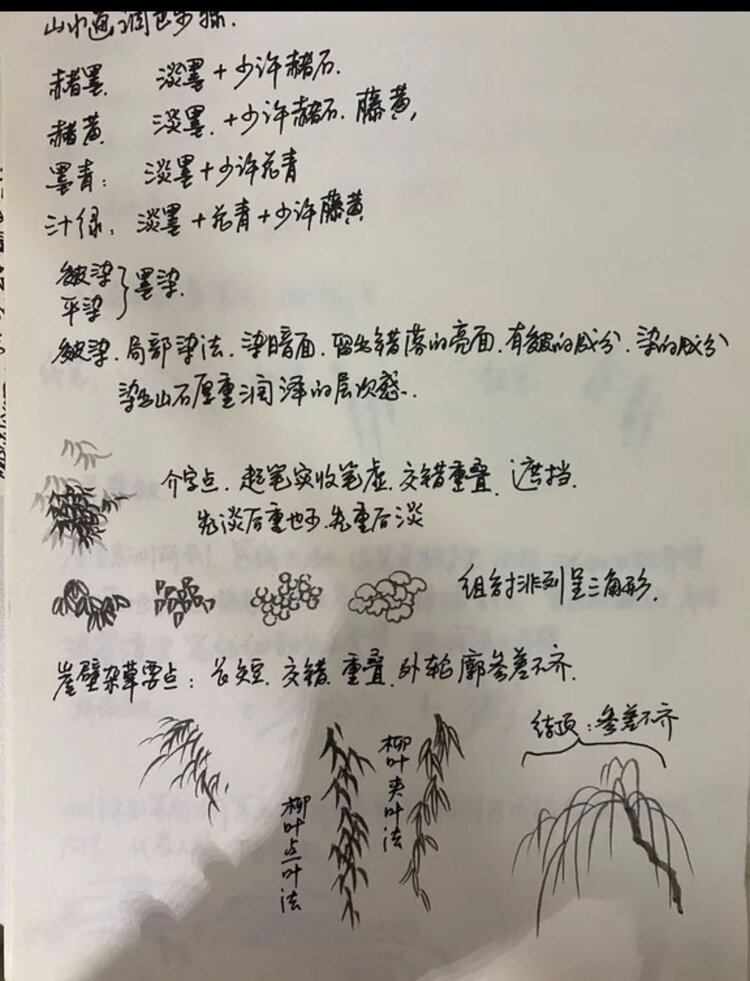 山水画调色步骤.
赭墨. 淡墨+少许赭石.
赭黄 淡墨.+少许赭石.藤黄,
墨青: 淡墨+少许花青
汁绿: 淡墨+花青+少许藤黄
皴染
平染
墨染.
皴染.局部染法.染暗面.留出错落的亮面.有皴的成分.染的成分
染出山石厚重润泽的层次感..
介字点.起笔实收笔虚.交错重叠.遮挡.
先淡后重也可.先重后淡
组合排列呈三角形.
崖壁杂草要点: 长短.交错.重叠.外轮廓参差不齐.
结顶:参差不齐
柳叶夹叶法
柳叶点叶法